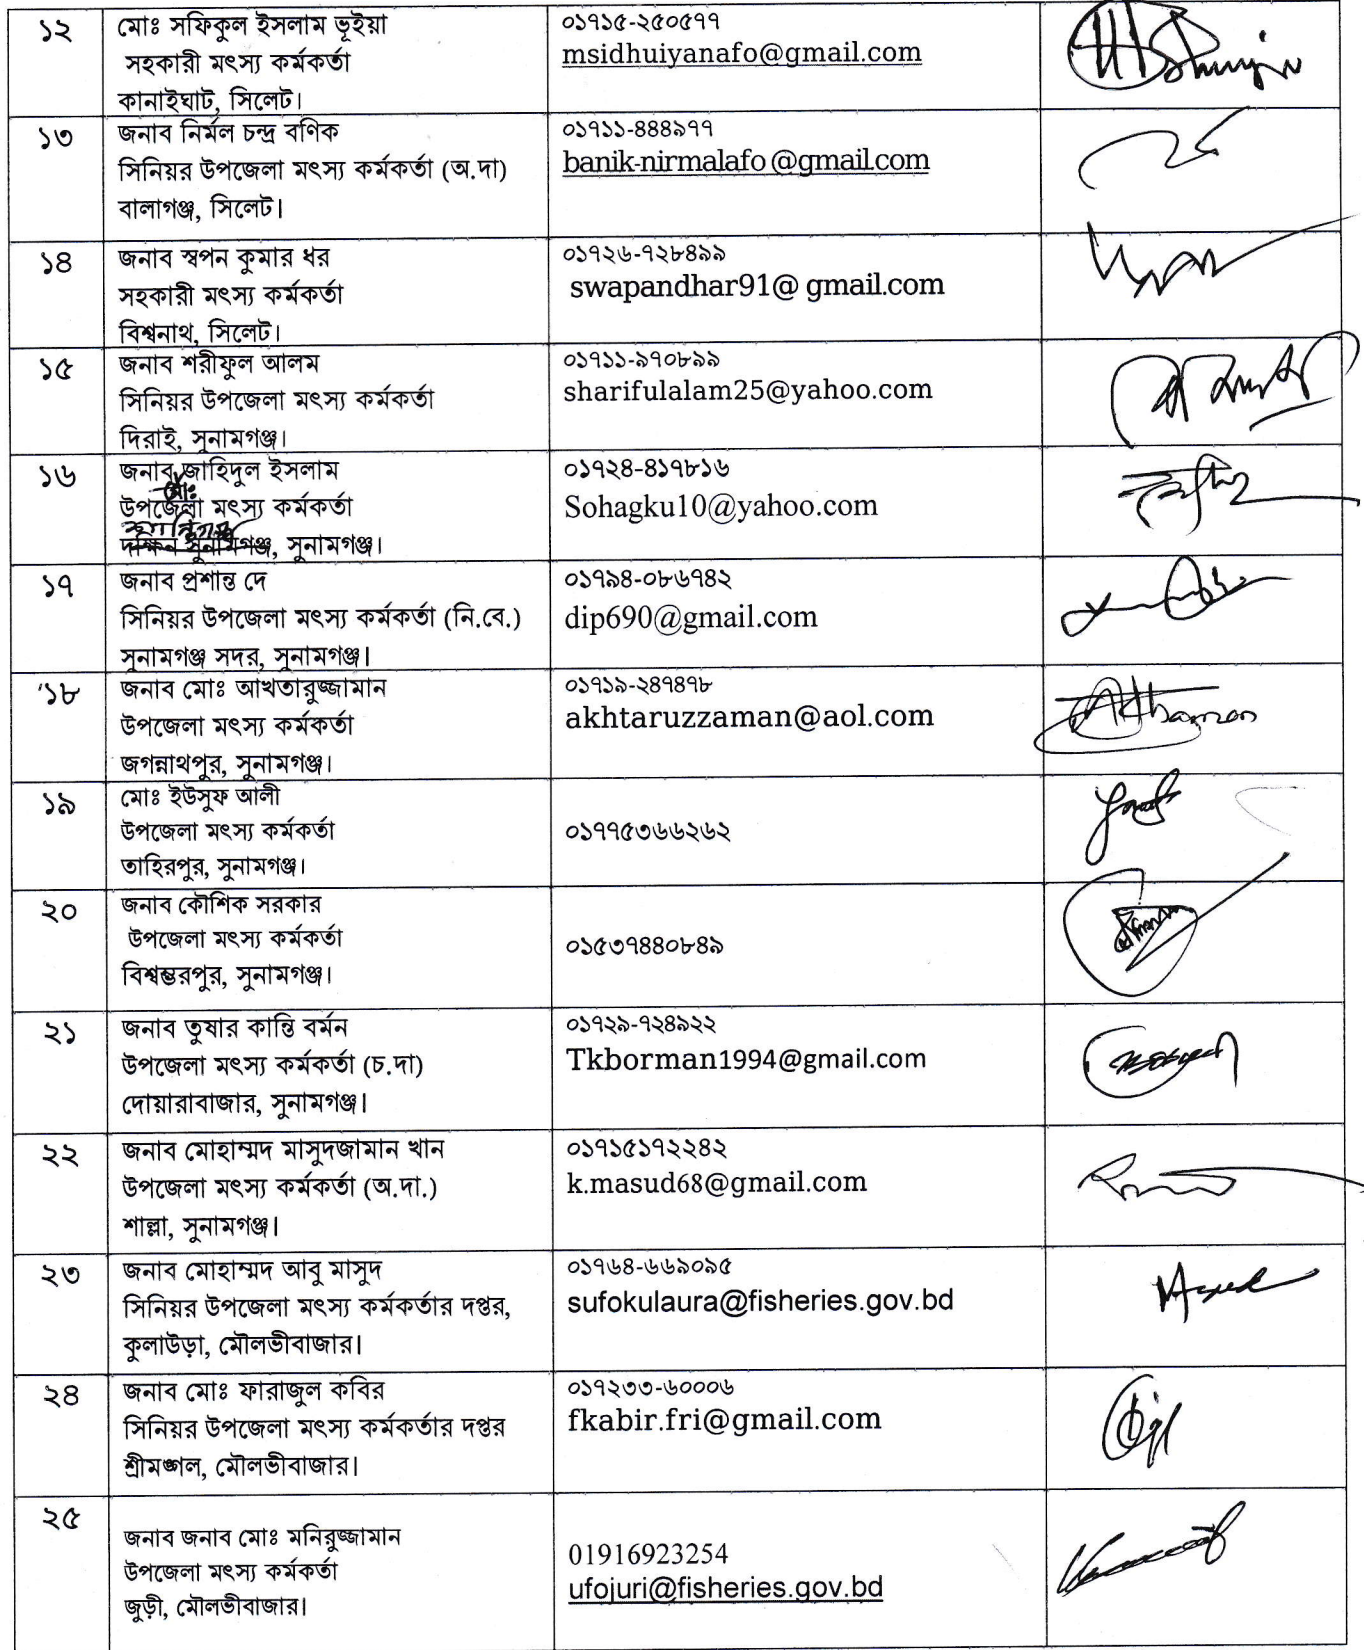 ১২
মোঃ সফিকুল ইসলাম ভূইয়া
সহকারী মৎস্য কর্মকর্তা
কানাইঘাট, সিলেট।
০১৭১৫-২৫০৫৭৭
msidhuiyanafo@gmail.com
১৩
জনাব নির্মল চন্দ্র বণিক
সিনিয়র উপজেলা মৎস্য কর্মকর্তা (অ.দা)
বালাগঞ্জ, সিলেট।
০১৭১১-৪৪৪৯৭৭
banik-nirmalafo@gmail.com
১৪
জনাব স্বপন কুমার ধর
সহকারী মৎস্য কর্মকর্তা
বিশ্বনাথ, সিলেট।
০১৭২৬-৭২৮৪৯৯
swapandhar91@ gmail.com
১৫
জনাব শরীফুল আলম
সিনিয়র উপজেলা মৎস্য কর্মকর্তা
দিরাই, সুনামগঞ্জ।
০১৭১১-৯৭০৮৯৯
sharifulalam25@yahoo.com
১৬
জনাব জাহিদুল ইসলাম
মোঃ
উপজেলা মৎস্য কর্মকর্তা
শান্তিগঞ্জ
দক্ষিন সুনামগঞ্জ, সুনামগঞ্জ।
০১৭২৪-৪১৭৮১৬
Sohagku10@yahoo.com
১৭
জনাব প্রশান্ত দে
সিনিয়র উপজেলা মৎস্য কর্মকর্তা (নি.বে.)
সুনামগঞ্জ সদর, সুনামগঞ্জ।
০১৭৯৪-০৮৬৭৪২
dip690@gmail.com
১৮
জনাব মোঃ আখতারুজ্জামান
উপজেলা মৎস্য কর্মকর্তা
জগন্নাথপুর, সুনামগঞ্জ।
০১৭১৯-২৪৭৪৭৮
akhtaruzzaman@aol.com
১৯
মোঃ ইউসুফ আলী
উপজেলা মৎস্য কর্মকর্তা
তাহিরপুর, সুনামগঞ্জ।
০১৭৭৫৩৬৬২৬২
২০
জনাব কৌশিক সরকার
উপজেলা মৎস্য কর্মকর্তা
বিশ্বম্ভরপুর, সুনামগঞ্জ।
০১৫৩৭৪৪০৮৪৯
২১
জনাব তুষার কান্তি বর্মন
উপজেলা মৎস্য কর্মকর্তা (চ.দা)
দোয়ারাবাজার, সুনামগঞ্জ।
০১৭২৯-৭২৪৯২২
Tkborman1994@gmail.com
২২
জনাব মোহাম্মদ মাসুদজামান খান
উপজেলা মৎস্য কর্মকর্তা (অ.দা.)
শাল্লা, সুনামগঞ্জ।
০১৭১৫১৭২২৪২
k.masud68@gmail.com
২৩
জনাব মোহাম্মদ আবু মাসুদ
সিনিয়র উপজেলা মৎস্য কর্মকর্তার দপ্তর,
কুলাউড়া, মৌলভীবাজার।
০১৭৬৪-৬৬৯০৯৫
sufokulaura@fisheries.gov.bd
২৪
জনাব মোঃ ফারাজুল কবির
সিনিয়র উপজেলা মৎস্য কর্মকর্তার দপ্তর
শ্রীমঙ্গল, মৌলভীবাজার।
০১৭২৩৩-৬০০০৬
fkabir.fri@gmail.com
২৫
জনাব জনাব মোঃ মনিরুজ্জামান
উপজেলা মৎস্য কর্মকর্তা
জুড়ী, মৌলভীবাজার।
01916923254
ufojuri@fisheries.gov.bd